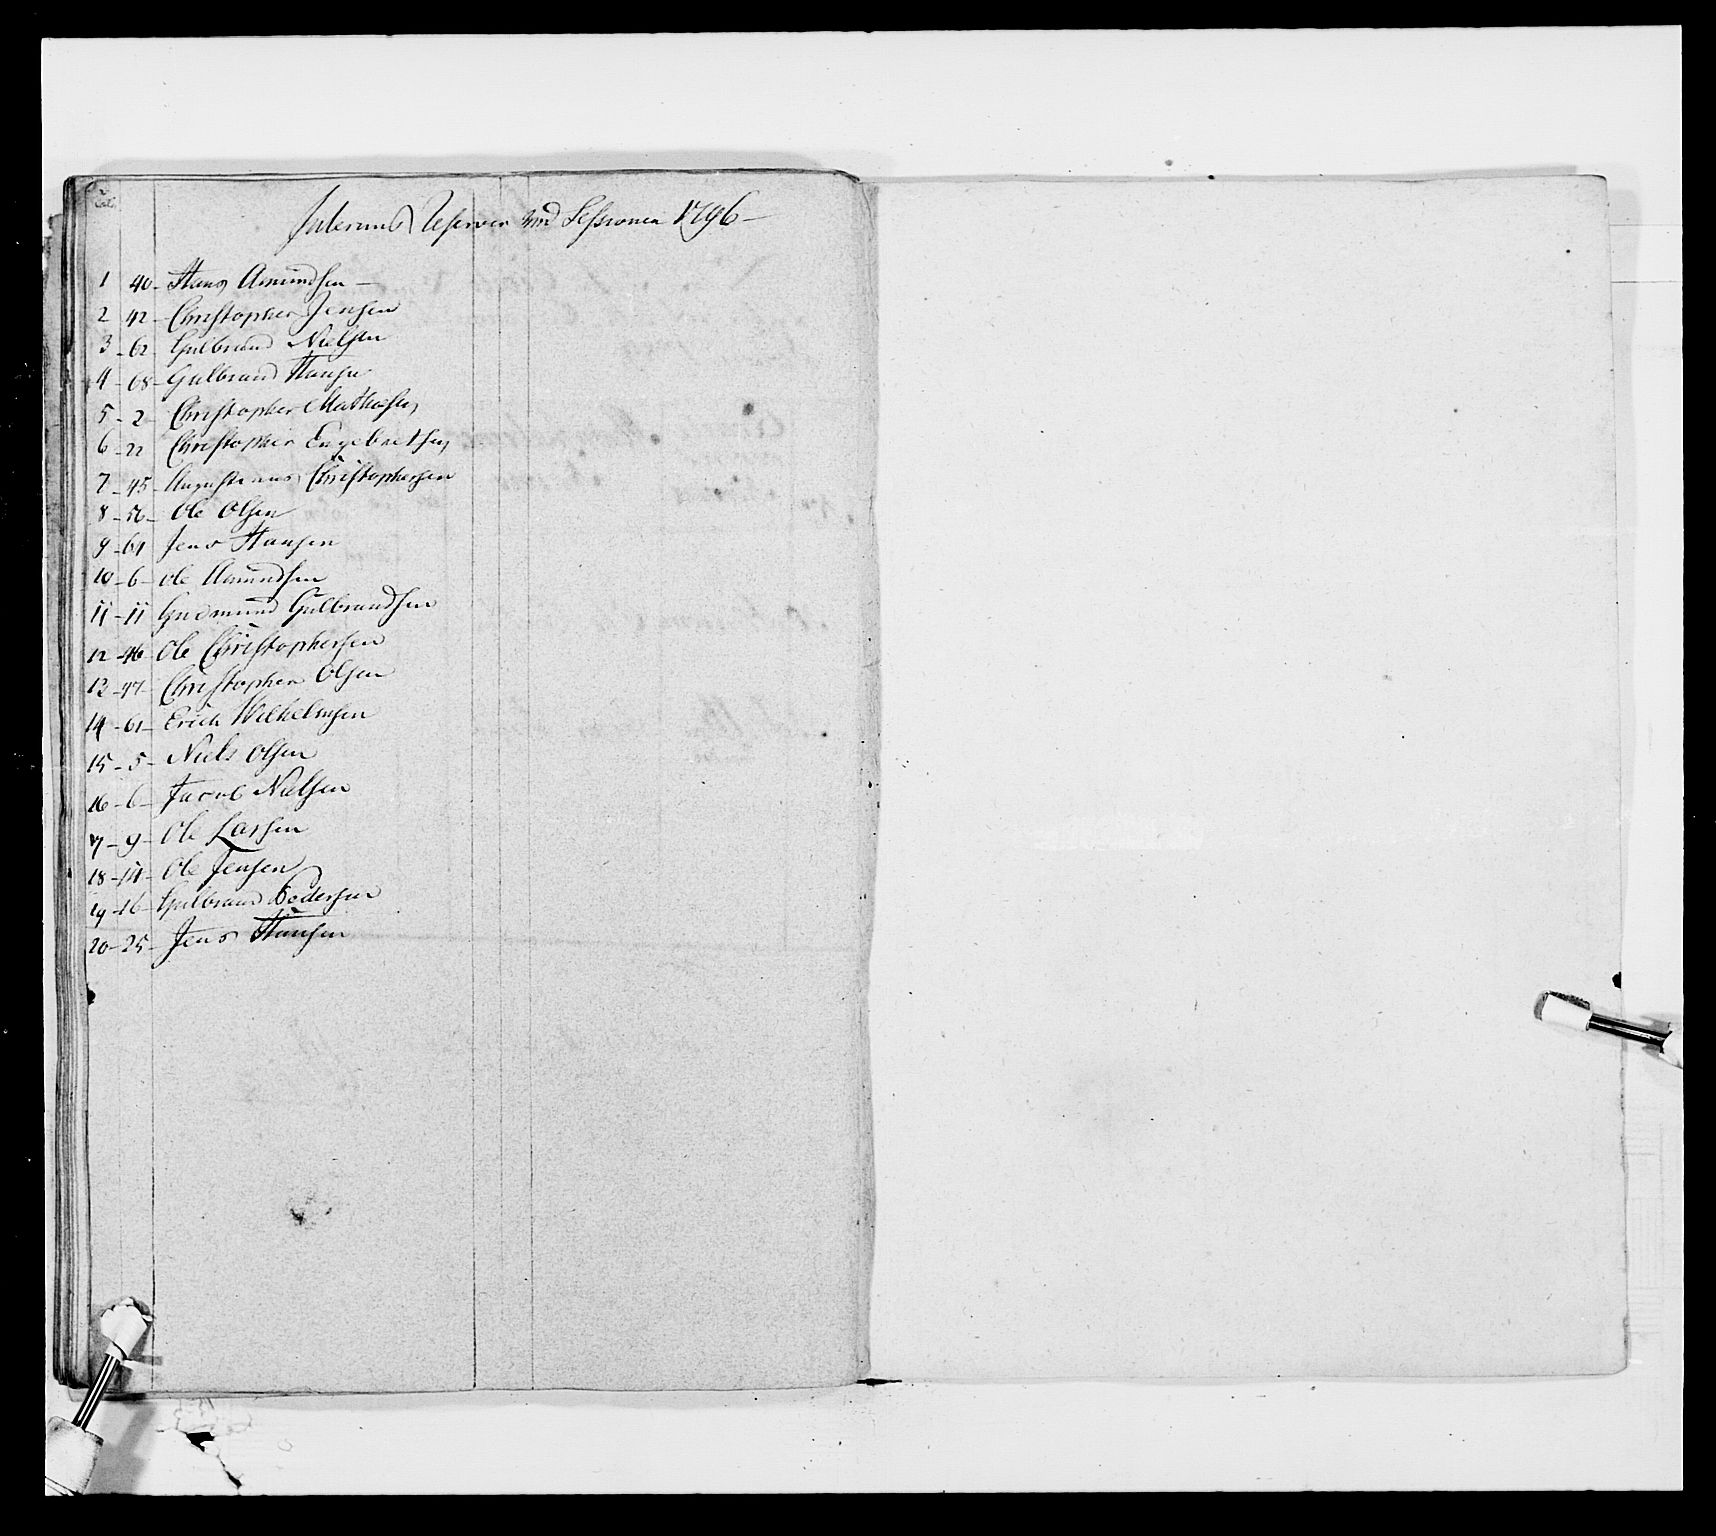 Interims Reserver ved Sessionen 1796 –
1 40 – Hans Amundsen –
2 42 – Christopher Jensen
3 – 62 – Gulbrand Nielsen
4 – 68 – Gulbrand Hansen
5 – 2 – Christopher Mathiesen
6 – 22 Christopher Engebretsen
7 – 45 – Augustinus Christophersen
8 – 56 – Ole Olsen
9 – 64 Jens Hansen
10 – 6 – Ole Amundsen
11 – 11 Gudmund Gulbrandsen
12 – 46 Ole Christophersen
13 – 47 – Christopher Olsen
14 – 61 – Erich Wilhelmsen
15 – 5 – Niels Olsen
16 – 6 – Jacob Nielsen
17 – 9 – Ole Larsen
18 – 14 – Ole Jensen
19 – 16 – Gulbrand Pedersen
20 – 25 – Jens Hansen